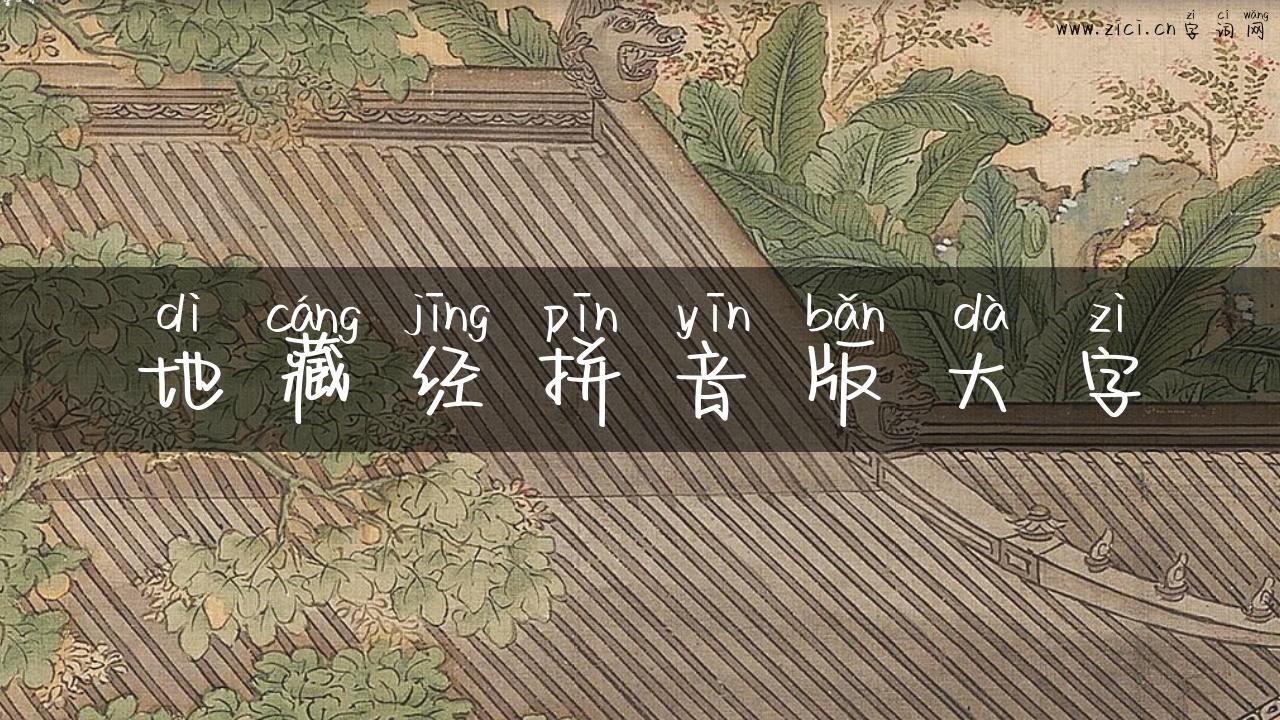 zì cí wǎng
www.zici.cn 字词网
dì cáng jīng pīn yīn bǎn dà zì
地藏经拼音版大字